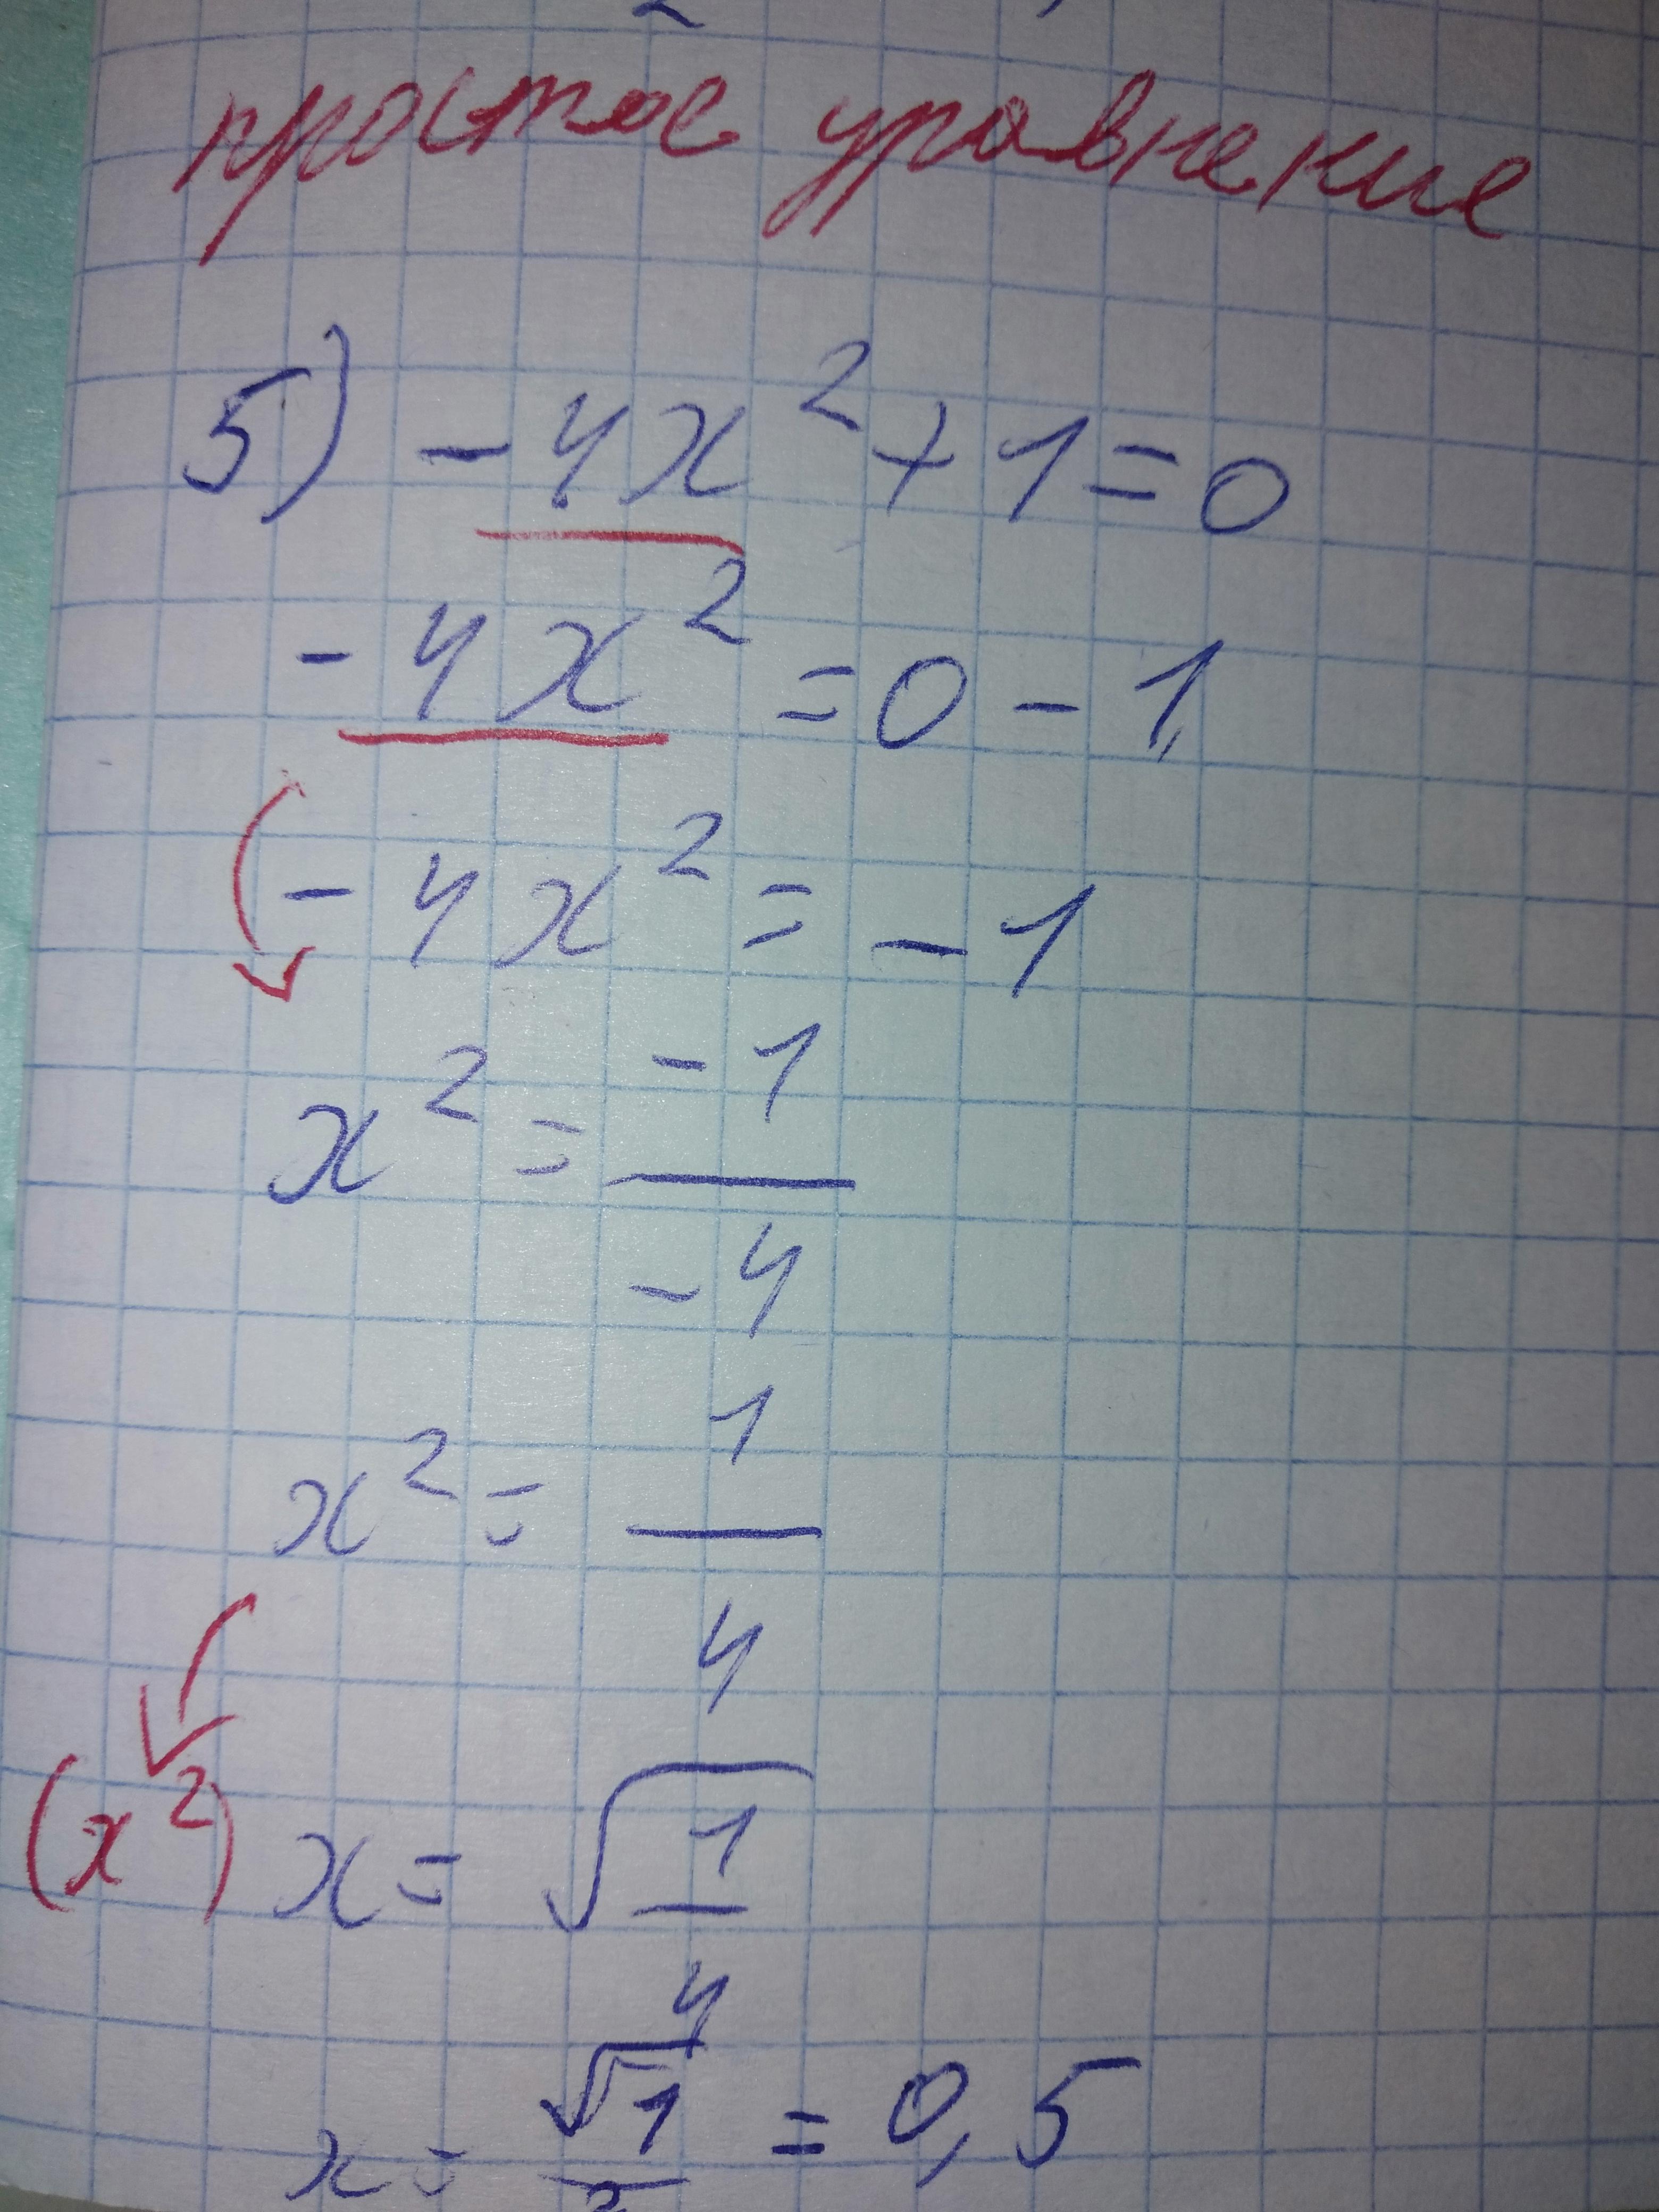 простое уравнение
5) -4x²+1=0
-4x²=0-1
-4x²=-1
x²=-1/-4
x²=1/4
(x²) x=√(1/4)
x=√1/2=0,5